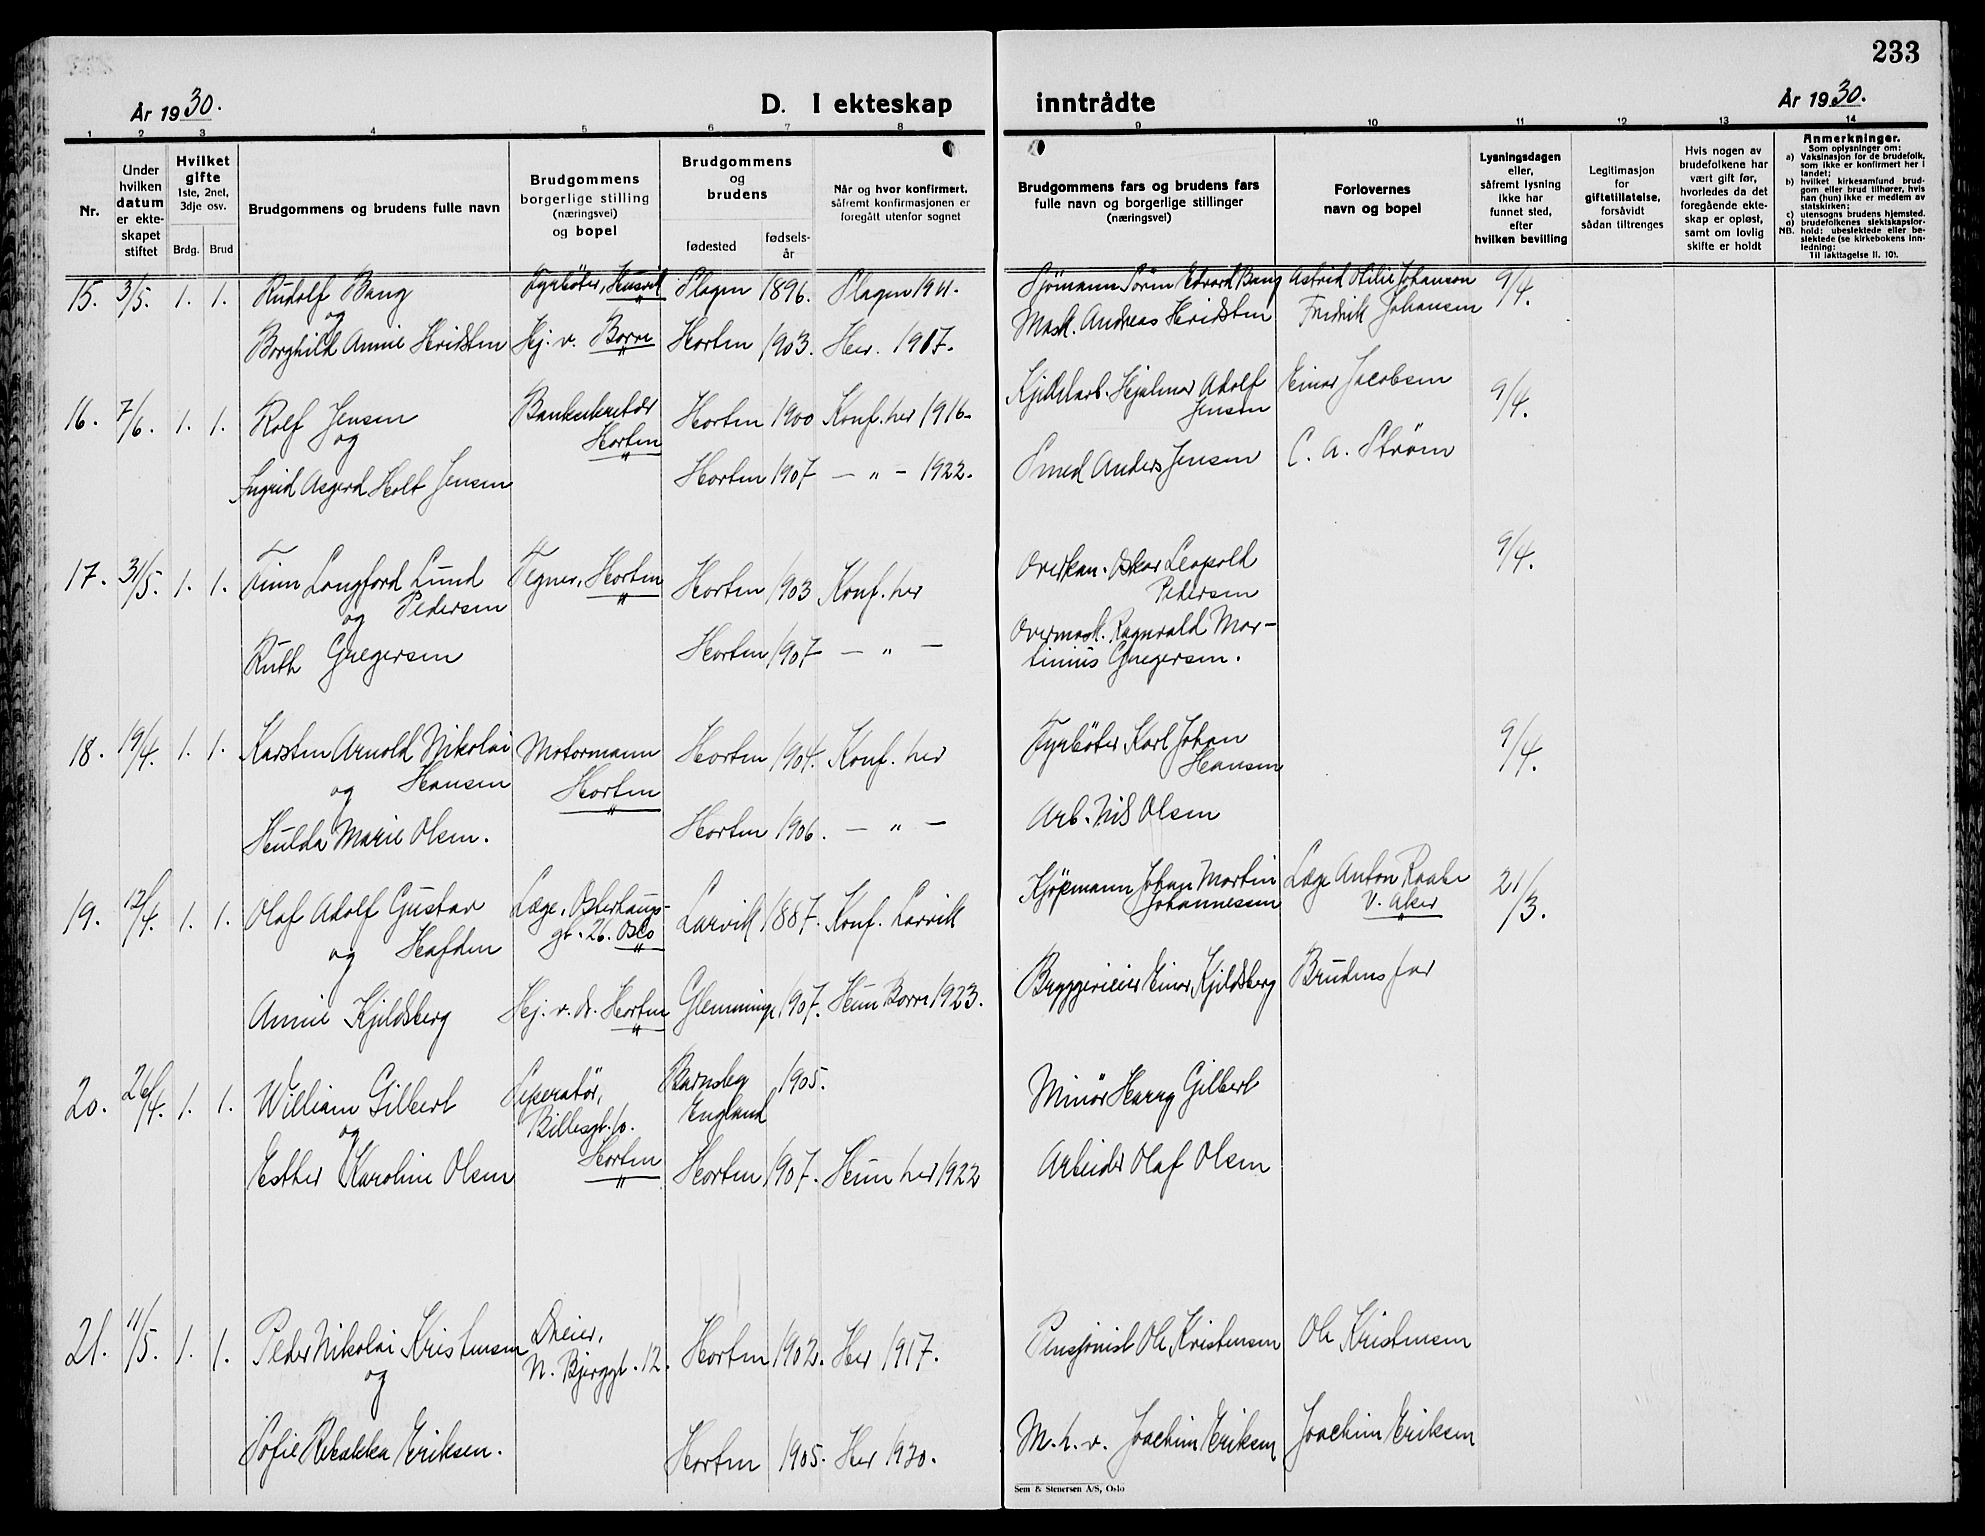 233
År 1930.
D. I ekteskap inntrådte
År 1930.
1 2 3 4 5 6 7 8 9 10 11 12 13 14
Nr.
Under hvilken datum er ekteskapet stiftet
Hvilket gifte
1ste, 2net, 3dje osv.
Brdg. Brud
Brudgommens og brudens fulle navn
Brudgommens borgerlige stilling (næringsvei) og bopel
Brudgommens og brudens
fødested
fødsels-år
Når og hvor konfirmert, såfremt konfirmasjonen er foregått utenfor sognet
Brudgommens fars og brudens fars fulle navn og borgerlige stillinger (næringsvei)
Forlovernes navn og bopel
Lysningsdagen eller, såfremt lysning ikke har funnet sted, efter hvilken bevilling
Legitimasjon for giftetillatelse, forsåvidt sådan tiltrenges
Hvis nogen av brudefolkene har vært gift før, hvorledes da det foregående ekteskap er opløst, samt om lovlig skifte er holdt
Anmerkninger.
Som oplysninger om:
a) Vaksinasjon for de brudefolk, som ikke er konfirmert her i landet;
b) hvilket kirkesamfund brudgom eller brud tilhører, hvis han (hun) ikke er medlem av statskirken;
c) utensogns brudens hjemsted.
d) brudefolkenes slektskapsforhold: ubeslektede eller beslektede (se kirkebokens innledning;
NB.
Til iakttagelse II. 10).
15. 3/5. 1. 1. Rudolf Bang Fyrbøter, Husvik Slagen 1896. Slagen 1911. Sjømann Sørin Edvard Bang Astrid Otilie Johanson 9/4.
og
Borghild Annie Hvidsten Hj. v. Borre Horten 1903. Her. 1917. Mask. Andreas Hvidsten Fredrik Johansen
16. 7/6. 1. 1. Rolf Jensen Banksekretær Horten 1900 Konf. her 1916. Kjedelarb. Hjalmar Adolf Einar Jacobsen 9/4.
og Horten Jensen
Ingrid Asgerd Holt Jensen Horten 1907 — " — 1922. Smed Anders Jensen C. A. Strøm
17. 31/5. 1. 1. Finn Longford Lund Tegner, Horten Horten 1903 Konf. her Overkan. Oskar Leopold 9/4.
og Pedersen Pedersen
Ruth Gregersen Horten 1907 — " — Overmask. Ragnvald Mar-
tinius Gregersen.
18. 19/4. 1. 1. Karsten Arnold Nikolai Motormann Horten 1904. Konf. her Fyrbøter Karl Johan 9/4.
og Hansen Horten Hansen
Hulda Marie Olsen. Horten 1906. — " — Arb. Nils Olsen
19. 12/4. 1. 1. Olaf Adolf Gustav Læge, Osterhaus- Larvik 1887. Konf. Larvik Kjøpmann Johan Martin Læge Anton Raabe 21/3.
og Hafden gt. 26. Oslo Johannesen V. Aker
Annie Kjeldsberg Hj. v. d. Horten Glemminge 1907. Hun Borre 1923. Bryggerieier Einar Kjeldsberg Brudens far
20. 26/4. 1. 1. William Gilbert Seperatør, Barnsley 1905. Minør Harry Gilbert
og Billesgt. 10. England
Esther Karoline Olsen Horten Horten 1907. Hun her 1922 Arbeider Olaf Olsen
21. 11/5. 1. 1. Peder Nikolai Kristensen Dreier, Horten 1902. Her 1917. Pensjonist Ole Kristensen Ole Kristensen
og N. Bjerggt. 12.
Sofie Rebekka Eriksen. Horten 1905. Her 1920. M. h. v. Joachim Eriksen Joachim Eriksen
Sem & Stenersen A/S, Oslo